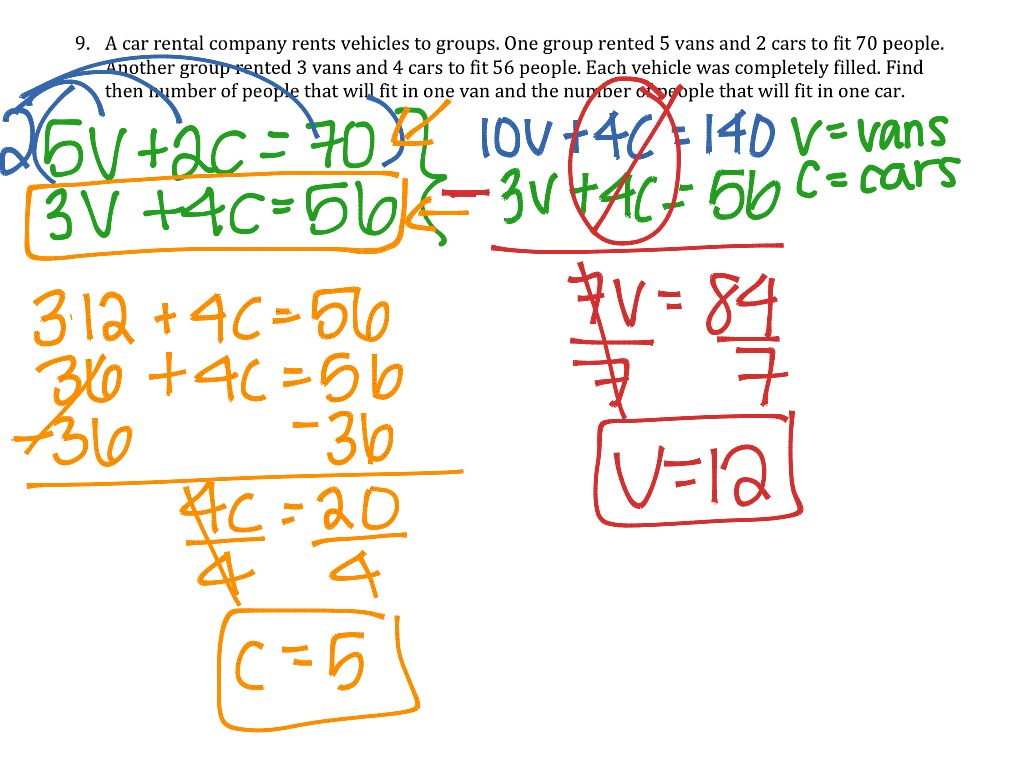 9. A car rental company rents vehicles to groups. One group rented 5 vans and 2 cars to fit 70 people.
Another group rented 3 vans and 4 cars to fit 56 people. Each vehicle was completely filled. Find
then number of people that will fit in one van and the number of people that will fit in one car.
2(5V+2C=70)
3V+4C=56
10V+4C=140
- 3V+4C=56
V=vans
C=cars
7V=84
7 7
V=12
3·12+4C=56
36+4C=56
-36 -36
4C=20
4 4
C=5